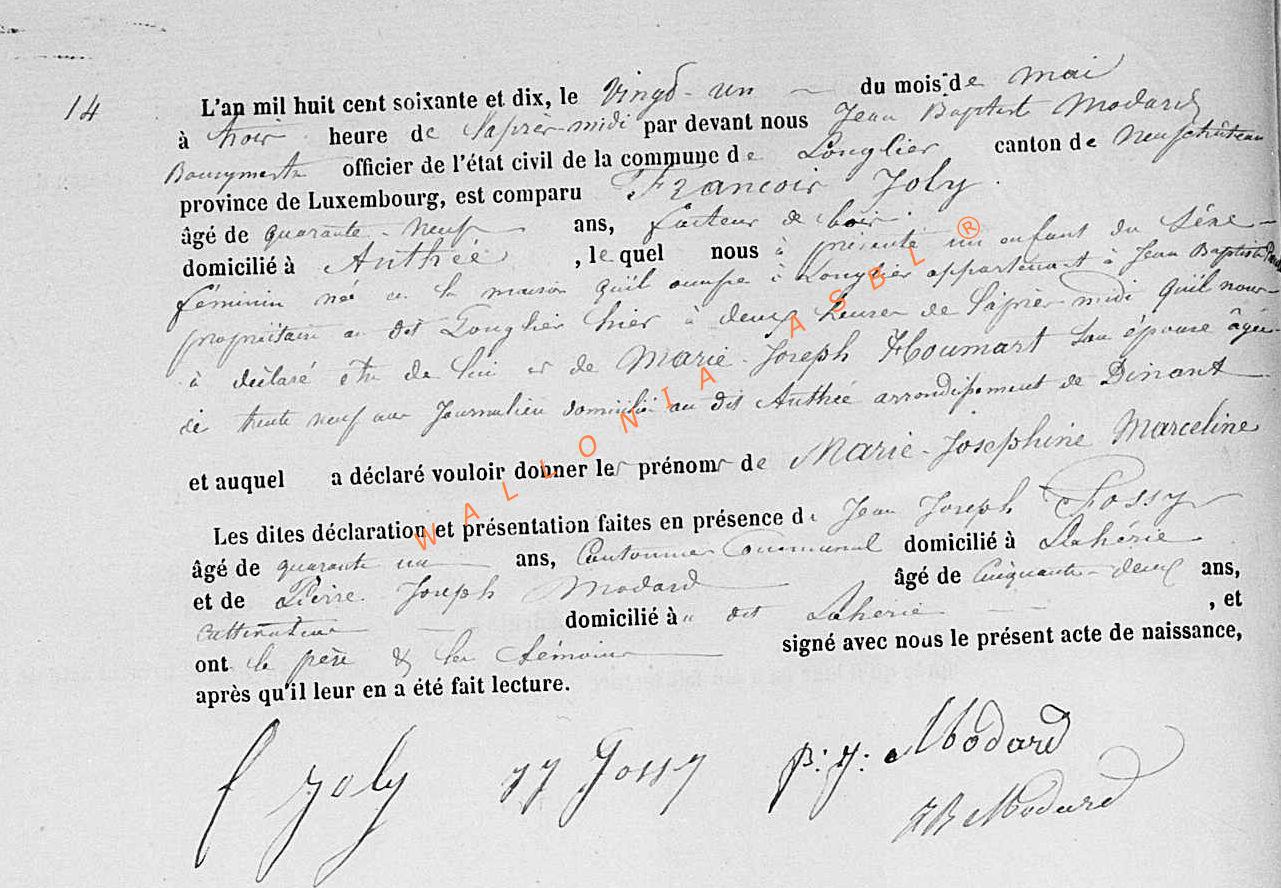 14
L'an mil huit cent soixante et dix, le Vingt-un du mois de mai
à trois heure de l'après-midi par devant nous Jean Baptist Modard
Bourgmestre officier de l'état civil de la commune de Longlier canton de Neufchâteau
province de Luxembourg, est comparu Francois Joly.
âgé de quarante-neuf ans, facteur de bois
domicilié à Anthée, le quel nous à présenté un enfant du Séxe
féminin née en la maison qu'il occupe à Longlier appartenant à Jean Baptiste
propriétaire au dit Longlier hier à deux heures de l'après-midi qu'il nous
à déclaré être de lui et de Marie-Joseph Houmart son épouse âgée
de trente neuf ans Journalier domicilié au dit Anthée arrondissement de Dinant
et auquel a déclaré vouloir donner les prénoms de Marie-Josephine Marceline
Les dites déclaration et présentation faites en présence de Jean Joseph Fossy
âgé de quarante un ans, Cantonnier Communal domicilié à Lahérie
et de Pierre Joseph Modard âgé de Cinquante-deux ans,
Cultivateur domicilié à dit Laherie, et
ont le père & les témoins signé avec nous le présent acte de naissance,
après qu'il leur en a été fait lecture.
f Joly JJ Fossy p: j: Modard
JB Modard
WALLONIA ASBL ®